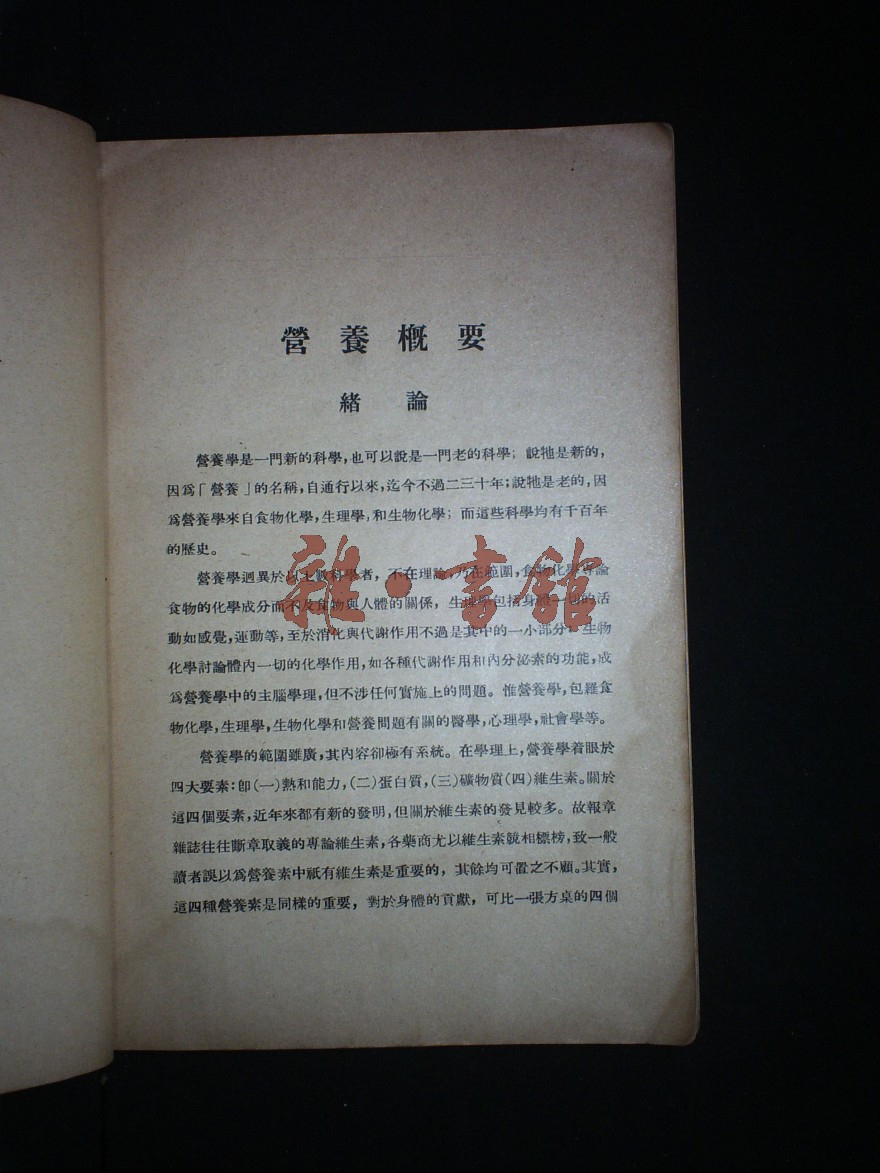 營養概要
緒論
營養學是一門新的科學，也可以說是一門老的科學；說牠是新的，
因爲「營養」的名稱，自通行以來，迄今不過二三十年；說牠是老的，因
爲營養學來自食物化學，生理學，和生物化學；而這些科學均有千百年
的歷史。
營養學迥異於以上數科學者，不在理論，乃在範圍，食物化學專論
食物的化學成分而不及食物與人體的關係，生理學包括身體一切的活
動如感覺，運動等，至於消化與代謝作用不過是其中的一小部分。生物
化學討論體內一切的化學作用，如各種代謝作用和內分泌素的功能，成
爲營養學中的主腦學理，但不涉任何實施上的問題。惟營養學，包羅食
物化學，生理學，生物化學和營養問題有關的醫學，心理學，社會學等。
營養學的範圍雖廣，其內容卻極有系統。在學理上，營養學着眼於
四大要素：卽（一）熱和能力，（二）蛋白質，（三）礦物質（四）維生素。關於
這四個要素，近年來都有新的發明，但關於維生素的發見較多。故報章
雜誌往往斷章取義的專論維生素，各藥商尤以維生素競相標榜，致一般
讀者誤以爲營養素中祇有維生素是重要的，其餘均可置之不顧。其實，
這四種營養素是同樣的重要，對於身體的貢獻，可比一張方桌的四個
雜·書館